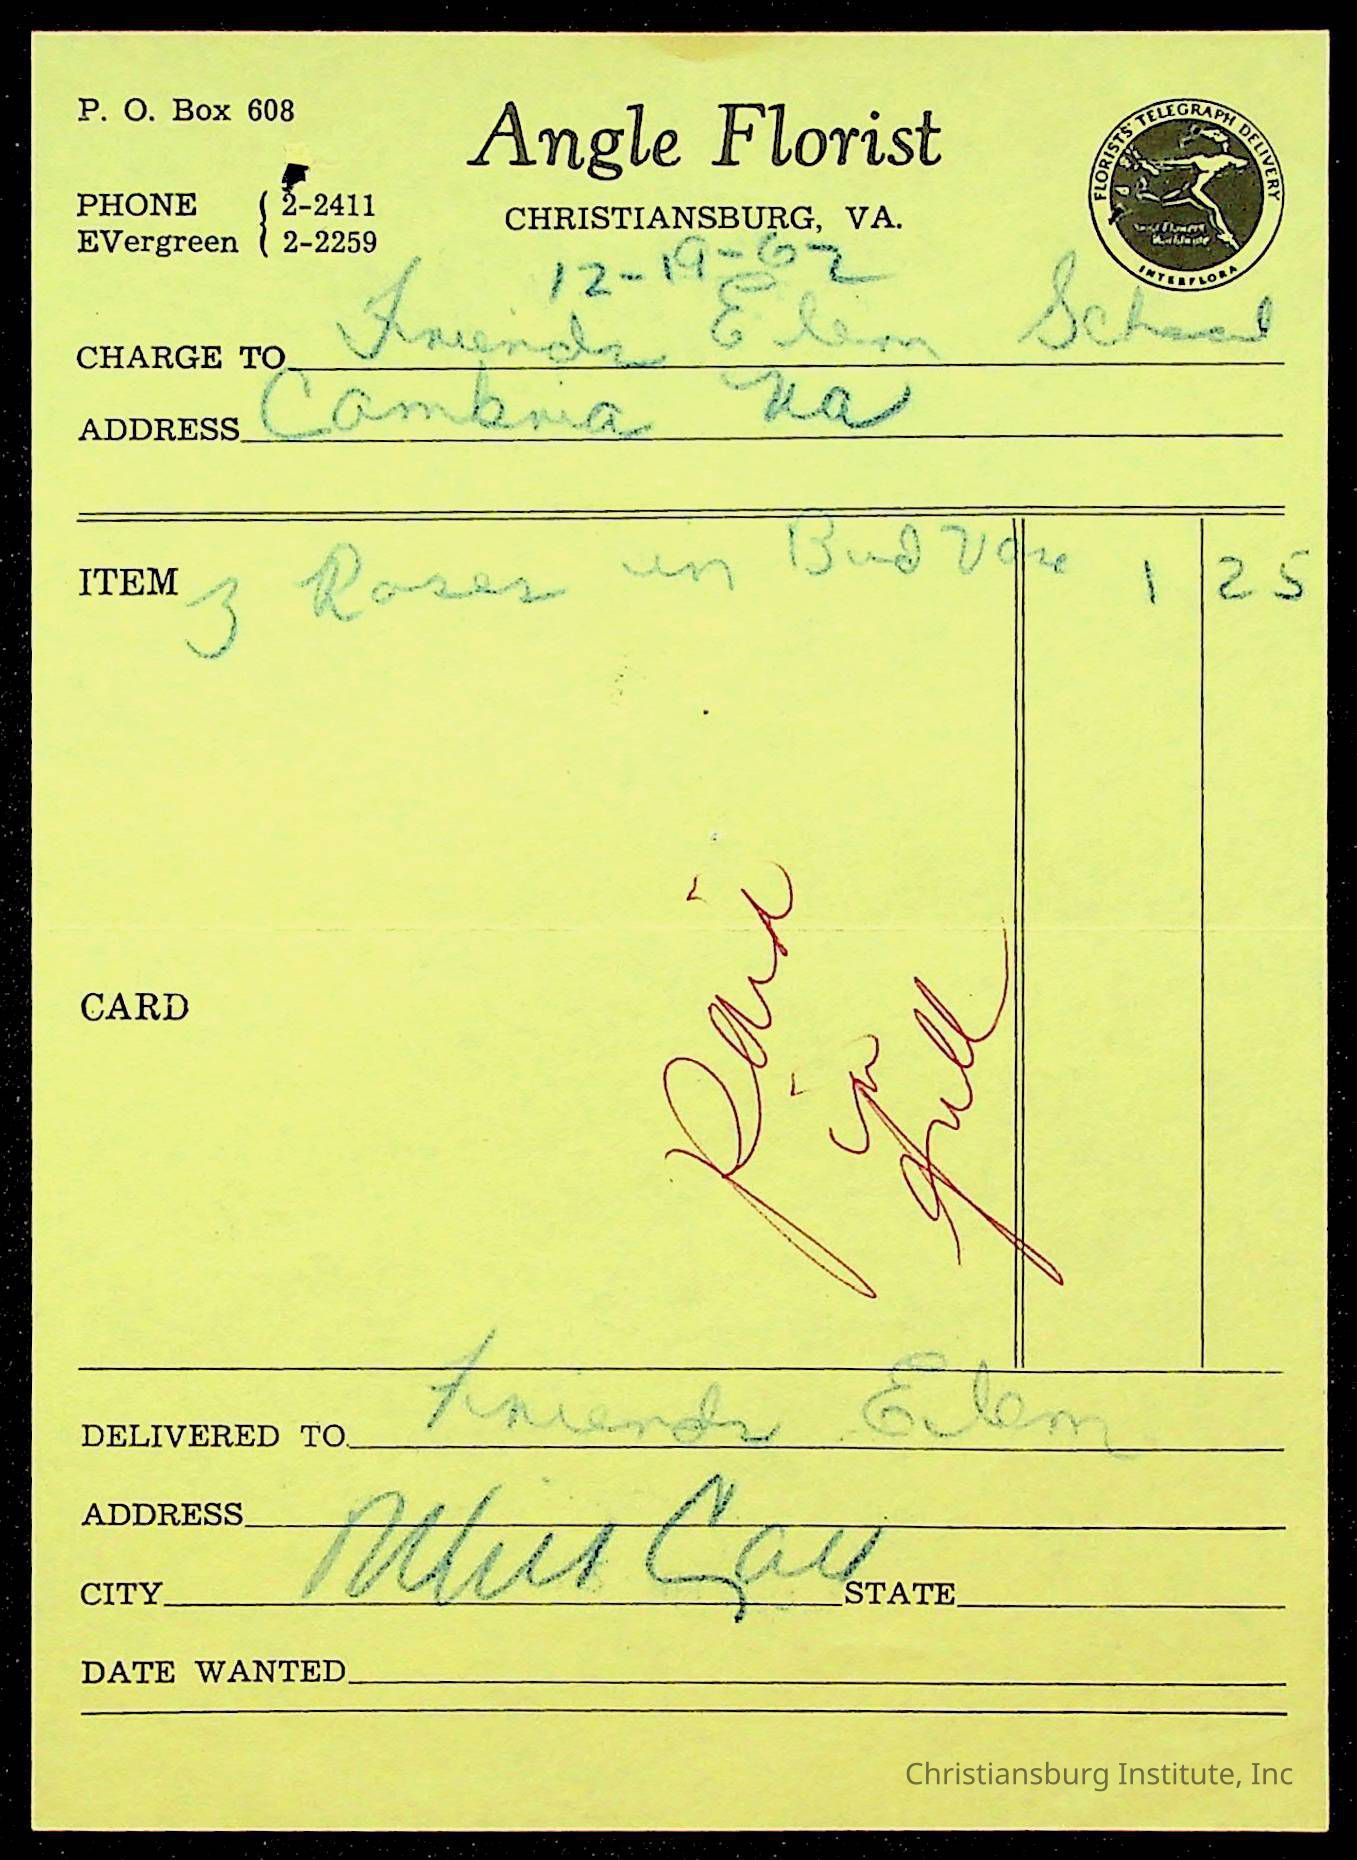 P. O. Box 608
Angle Florist
FLORISTS' TELEGRAPH DELIVERY
INTERFLORA
PHONE 2-2411
EVergreen 2-2259
CHRISTIANSBURG, VA.
12-19-62
CHARGE TO Friends Elem School
ADDRESS Cambria Va
ITEM 3 Roses in Bud Vase 1 25
CARD
Paid
in
full
DELIVERED TO Friends Elem
ADDRESS
Miss
CITY STATE
DATE WANTED
Christiansburg Institute, Inc